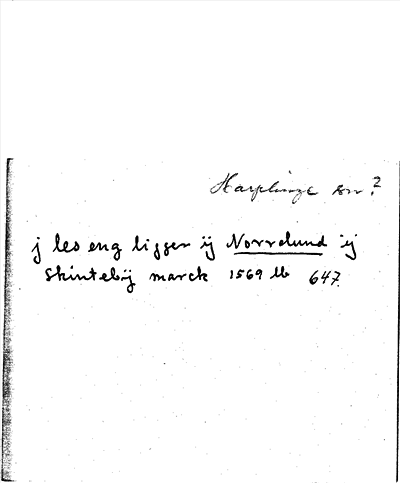 Harplinge sn?
j les eng ligger ij Norrelund ij
Skintebÿ marck 1569 lb 647.